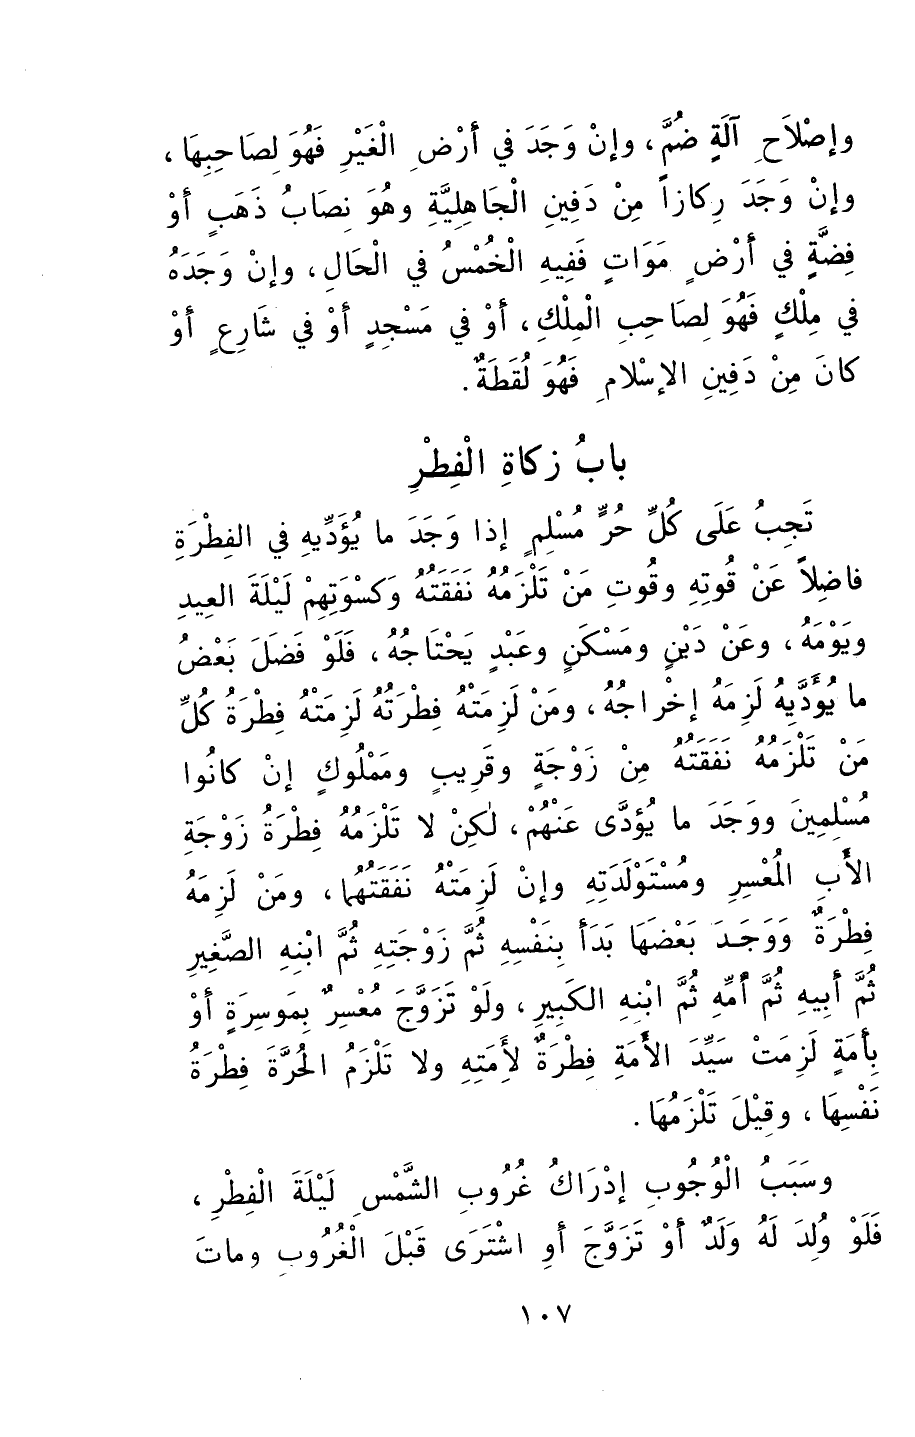 وإصْلَاحِ آلَةٍ ضُمَّ، وإنْ وَجَدَ في أَرْضِ الْغَيْرِ فَهُوَ لِصَاحِبِهَا،
وإنْ وَجَدَ رِكازاً مِنْ دَفِينِ الْجَاهِلِيَّةِ وهُوَ نِصَابُ ذَهَبٍ أوْ
فِضَّةٍ في أَرْضٍ مَوَاتٍ فَفِيهِ الْخُمْسُ في الْحَالِ، وإنْ وَجَدَهُ
في مِلْكٍ فَهُوَ لِصَاحِبِ الْمِلْكِ، أوْ في مَسْجِدٍ أوْ في شَارِعٍ أوْ
كانَ مِنْ دَفِينِ الإسْلامِ فَهُوَ لُقَطَةٌ.
بابُ زكاةِ الْفِطْرِ
تَجِبُ عَلَى كُلِّ حُرٍّ مُسْلِمٍ إذا وَجَدَ ما يُؤَدِّيهِ في الفِطْرَةِ
فاضِلاً عَنْ قُوتِهِ وقُوتِ مَنْ تَلْزَمُهُ نَفَقَتُهُ وَكسْوَتِهِمْ لَيْلَةَ العِيدِ
ويَوْمَهُ، وعَنْ دَيْنٍ ومَسْكَنٍ وعَبْدٍ يَحْتَاجُهُ، فَلَوْ فَضَلَ بَعْضُ
ما يُؤَدِّيهُ لَزِمَهُ إخْراجُهُ، ومَنْ لَزِمَتْهُ فِطْرَتُهُ لَزِمَتْهُ فِطْرَةُ كُلِّ
مَنْ تَلْزَمُهُ نَفَقَتُهُ مِنْ زَوْجَةٍ وقَرِيبٍ ومَمْلُوكٍ إنْ كانُوا
مُسْلِمِينَ ووَجَدَ ما يُؤدَّى عَنْهُمْ، لٰكِنْ لا تَلْزَمُهُ فِطْرَةُ زَوْجَةِ
الأَبِ المُعْسِرِ ومُسْتَوْلَدَتِهِ وإنْ لَزِمَتْهُ نَفَقَتُهُما، ومَنْ لَزِمَهُ
فِطْرَةٌ وَوَجَدَ بَعْضَهَا بَدَأ بِنَفْسِهِ ثُمَّ زَوْجَتِهِ ثُمَّ ابْنِهِ الصَّغِيرِ
ثُمَّ أبِيهِ ثُمَّ أمِّهِ ثُمَّ ابْنِهِ الكَبِيرِ، ولَوْ تَزَوَّجَ مُعْسِرٌ بِمَوسِرَةٍ أوْ
بِأمَةٍ لَزِمَتْ سَيِّدَ الأَمَةِ فِطْرَةٌ لأَمَتِهِ ولا تَلْزَمُ الحُرَّةَ فِطْرَةُ
نَفْسِهَا، وقِيْلَ تَلْزَمُهَا.
وسَبَبُ الْوُجُوبِ إدْرَاكُ غُرُوبِ الشَّمْسِ لَيْلَةَ الْفِطْرِ،
فَلَوْ وُلِدَ لَهُ وَلَدٌ أوْ تَزَوَّجَ أوِ اشْتَرَى قَبْلَ الْغُرُوبِ وماتَ
١٠٧